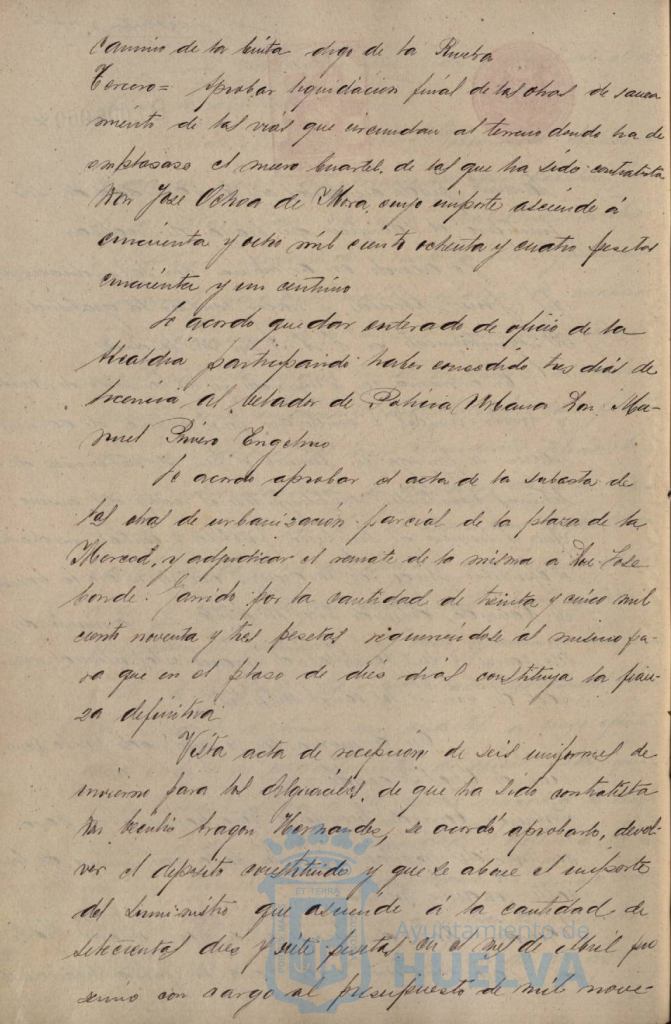 camino de la Cinta digo de la Ruesta
Tercero= Aprobar liquidacion final de las obras de sanea
miento de las vias que circundan al terreno donde ha de
emplasase el nuevo Cuartel, de las que ha sido contratista
Don Jose Ochoa de Mora, cuyo importe asciende á
cincuenta y ocho mil ciento ochenta y cuatro pesetas
cincuenta y un centimo
Se acordo quedar enterado de oficio de la
Alcaldia participando haber concedido tres dias de
licencia al Celador de Policia Urbana Don Ma-
nuel Rivero Engelmo
Se acordo aprobar el acta de la subasta de
las obras de urbanización parcial de la plaza de la
Merced, y adjudicar el remate de la misma á Don Jose
Conde Garrido por la cantidad de treinta y cinco mil
ciento noventa y tres pesetas requiriendose al mismo pa-
ra que en el plaso de dies dias constituya la fian-
za definitiva
Vista acta de recepcion de seis uniformes de
invierno para los Alguaciles, de que ha sido contratista
Don Aragon Hernandes, se acordó aprobarlo, devol-
ver el deposito constituido y que se abone el importe
del suministro que asciende á la cantidad de
setecientas dies y siete pesetas en el mes de Abril pro
ximo con cargo al presupuesto de mil nove-
ET TERRA
Ayuntamiento de
HUELVA